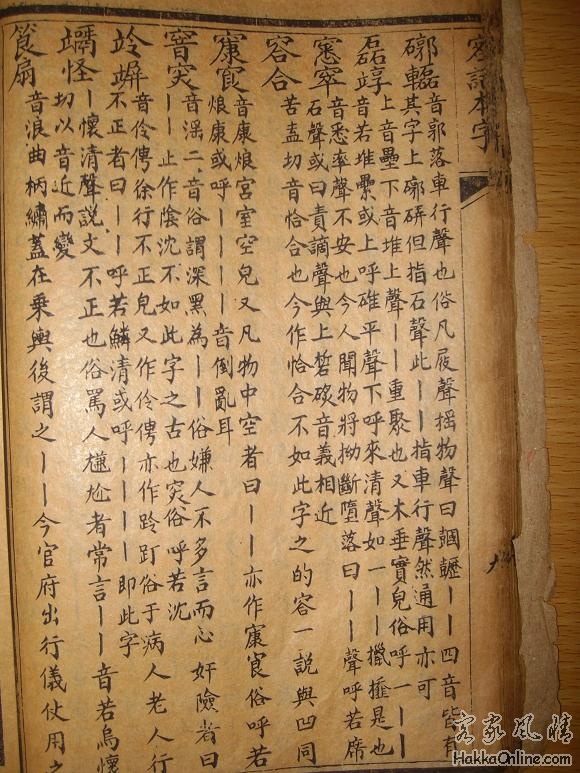 客話本字
音郭落車行聲也俗凡屐聲搖物聲曰轣｜｜四音皆有
其字上廓硑但指石聲此｜｜指車行聲然通用亦可
磊
上音壘下音堆上聲｜｜重聚也又木垂實皃俗呼一｜｜
音若堆纍或上呼碓平聲下呼來清聲如一｜｜擸是也
窸窣
音悉率聲不安也今人聞物將拗斷墮落曰｜｜聲呼若席
石聲或曰責謫聲與上音義相近
容合
苦盍切音恰合也今作恰合不如此字之的容一說與凹同
㝩㝗
音康烺宮室空皃又凡物中空者曰｜｜亦作㝩㝗俗呼若
烺康或呼｜｜｜｜音倒亂耳
窨
音二音俗謂深黑為｜｜俗嫌人不多言而心奸險者曰
｜｜止作陰沈不如此字之古也俗呼若沈
竛竮
音伶俜徐行不正皃又作伶俜亦作跉俗于病人老人行
不正者曰｜｜呼若鱗清或呼｜｜｜｜即此字
竵怪
｜懷清聲說文不正也俗罵人尷尬者常言｜｜音若烏懷
切以音近而變
筤扇
音浪曲柄繡蓋在乘輿後謂之｜｜今官府出行儀仗用之
客家風情
HakkaOnline.com